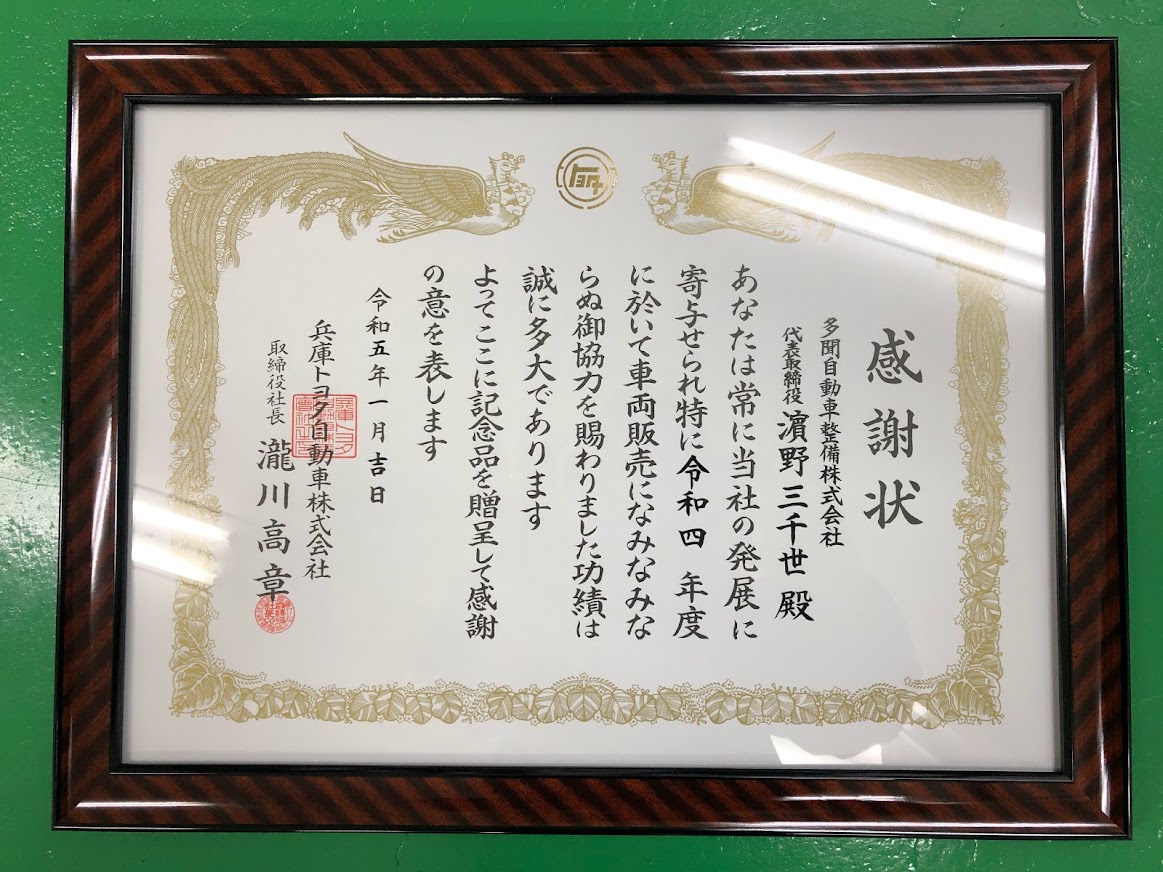 トヨタ
感謝状
多聞自動車整備株式会社
代表取締役 濵野三千世殿
あなたは常に当社の発展に
寄与せられ特に令和四 年度
に於いて車両販売になみなみな
らぬ御協力を賜わりました功績は
誠に多大であります
よってここに記念品を贈呈して感謝
の意を表します
令和五年一月吉日
兵庫トヨタ自動車株式会社
取締役社長 瀧川高章